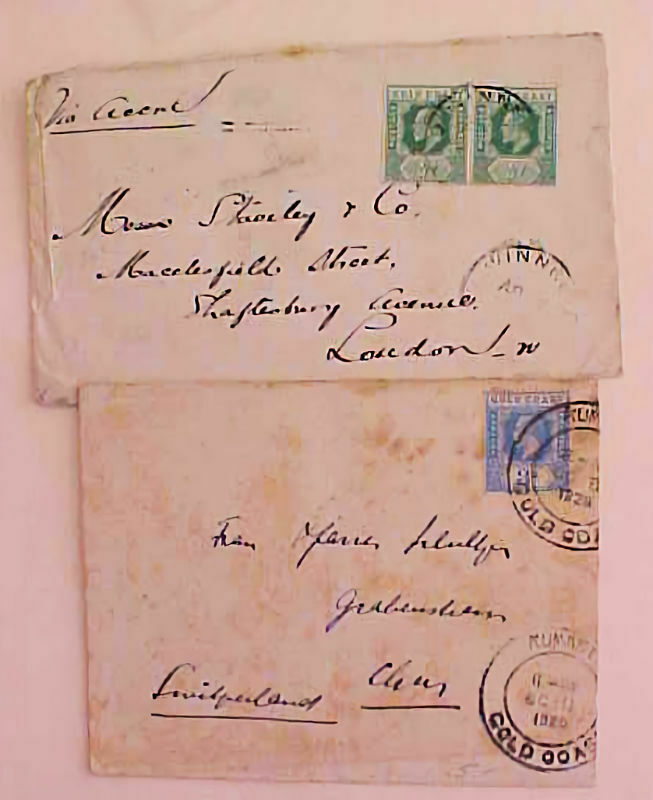 Via Accra
GOLD COAST
GOLD COAST
Messrs Stavley & Co.
Macclesfield Street,
Shaftesbury Avenue.
London W
WINN
GOLD COAST
KUM
1920
GOLD COAS
Frau Pfarrer
Switzerland
Chur
KUMA
1920
GOLD COAS